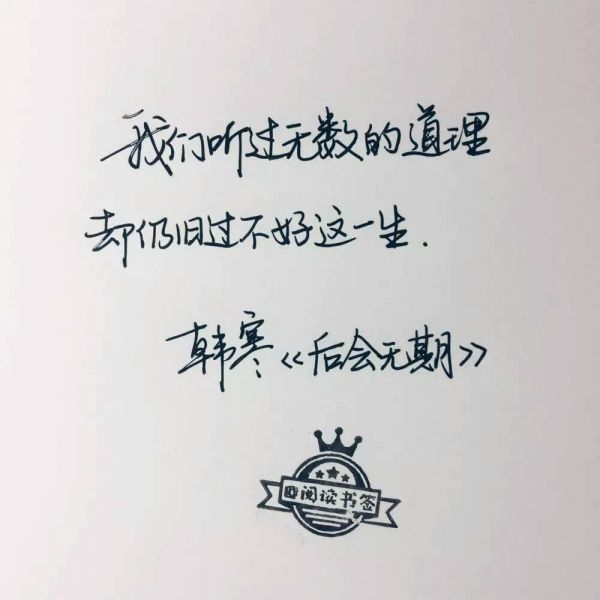 我们听过无数的道理
却仍旧过不好这一生.
韩寒《后会无期》
@阅读书签